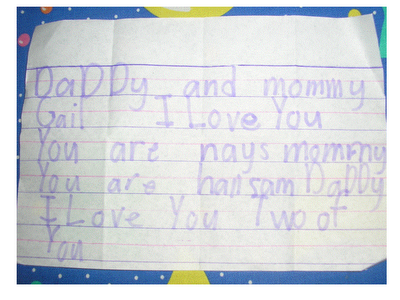 DaDDy and mommy
Gail I Love You
You are nays mommy
You are hansam DaDDy
I Love You Two of
You